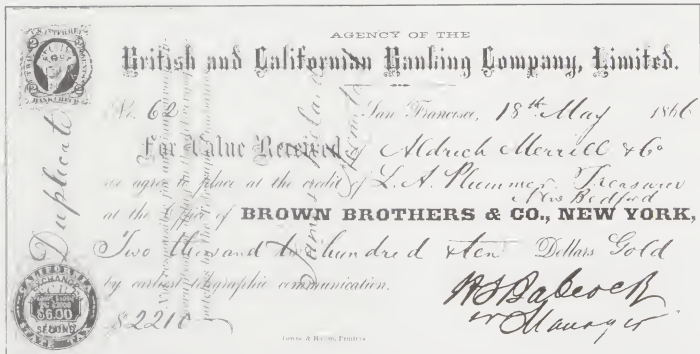 AGENCY OF THE
British and Californian Banking Company, Limited.
No. 62 San Francisco, 18th May 1866
For Value Received of Aldrich Merrill & Co
we agree to place at the credit of L. A. Plummer Treasurer
New Bedford
at the Office of BROWN BROTHERS & CO., NEW YORK,
Two thousand two hundred & ten Dollars Gold
by earliest telegraphic communication.
$2210
Manager
Duplicate
U.S. INTER. REV.
BANK CHECK
CALIFORNIA
EXCHANGE
$6.00
SECOND
STATE TAX
Printers